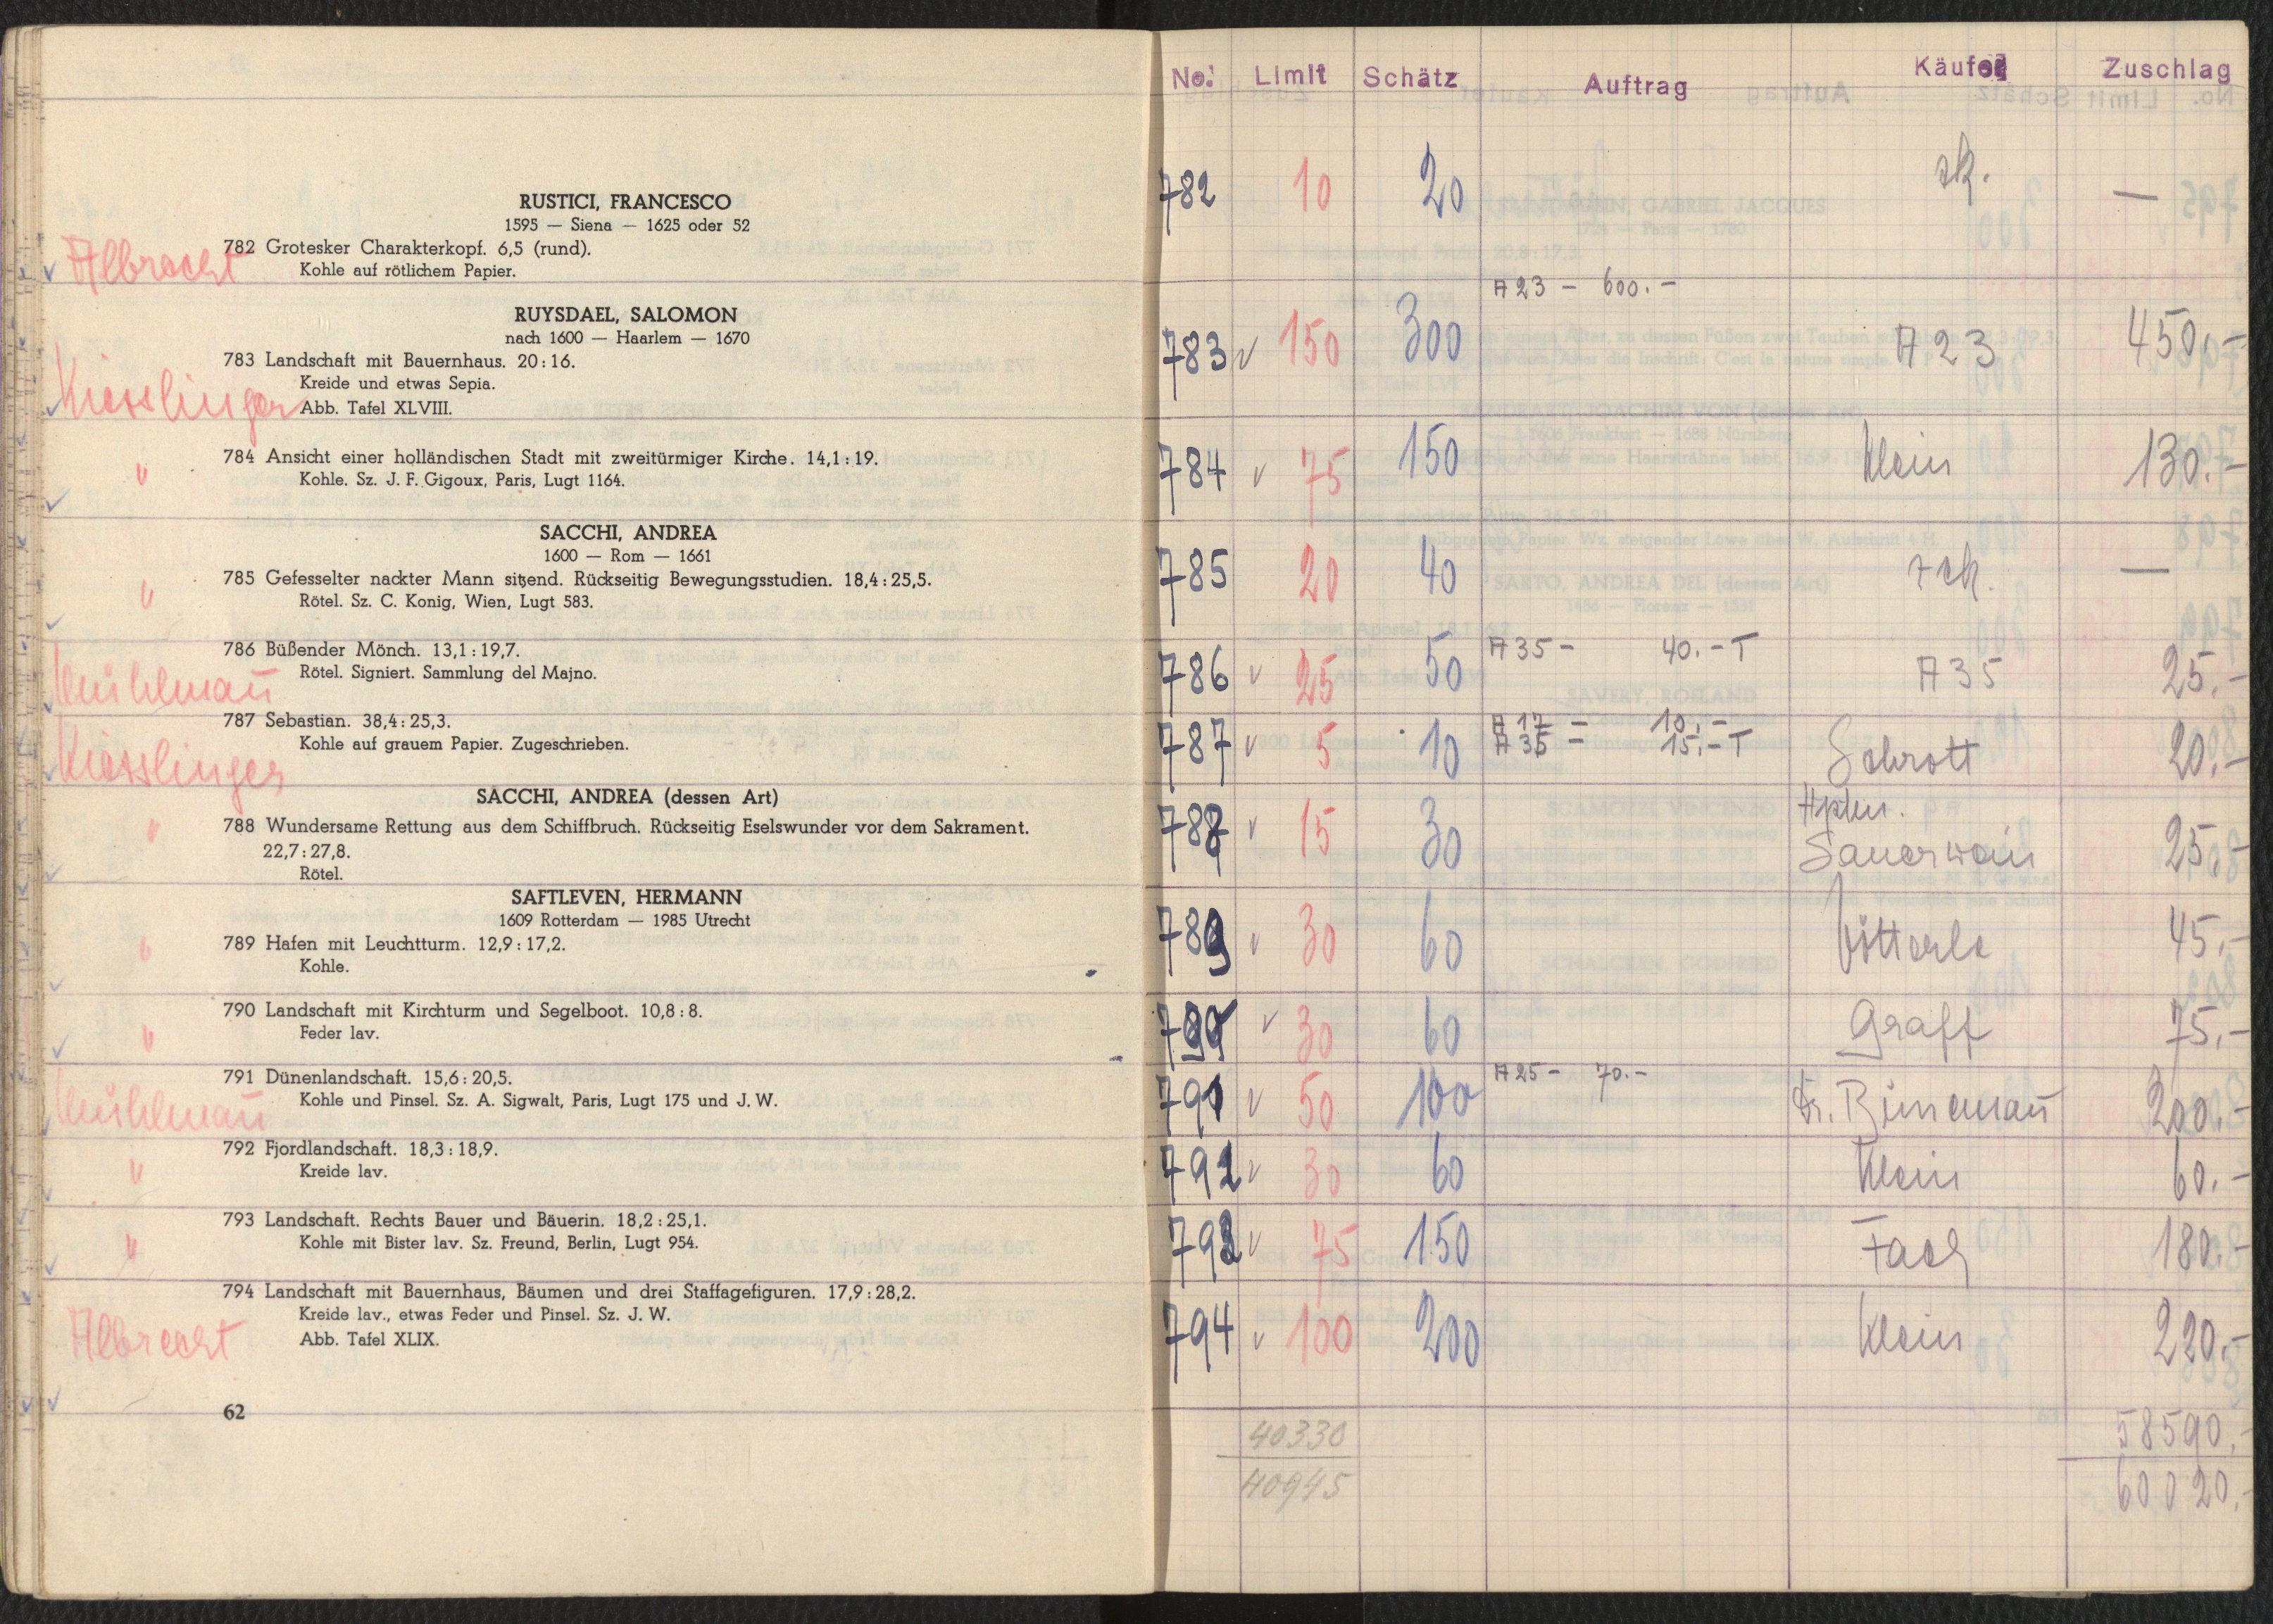 RUSTICI, FRANCESCO
1595 — Siena — 1625 oder 52
Albrecht
782 Grotesker Charakterkopf. 6,5 (rund).
Kohle auf rötlichem Papier.
RUYSDAEL, SALOMON
nach 1600 — Haarlem — 1670
783 Landschaft mit Bauernhaus. 20:16.
Kreide und etwas Sepia.
Kiesslinger
Abb. Tafel XLVIII.
784 Ansicht einer holländischen Stadt mit zweitürmiger Kirche. 14,1:19.
Kohle. Sz. J. F. Gigoux, Paris, Lugt 1164.
SACCHI, ANDREA
1600 — Rom — 1661
785 Gefesselter nackter Mann sitzend. Rückseitig Bewegungsstudien. 18,4:25,5.
Rötel. Sz. C. Konig, Wien, Lugt 583.
786 Büßender Mönch. 13,1:19,7.
Rötel. Signiert. Sammlung del Majno.
787 Sebastian. 38,4:25,3.
Kohle auf grauem Papier. Zugeschrieben.
Kiesslinger
SACCHI, ANDREA (dessen Art)
788 Wundersame Rettung aus dem Schiffbruch. Rückseitig Eselswunder vor dem Sakrament.
22,7:27,8.
Rötel.
SAFTLEVEN, HERMANN
1609 Rotterdam — 1985 Utrecht
789 Hafen mit Leuchtturm. 12,9:17,2.
Kohle.
790 Landschaft mit Kirchturm und Segelboot. 10,8:8.
Feder lav.
791 Dünenlandschaft. 15,6:20,5.
Kohle und Pinsel. Sz. A. Sigwalt, Paris, Lugt 175 und J. W.
792 Fjordlandschaft. 18,3:18,9.
Kreide lav.
793 Landschaft. Rechts Bauer und Bäuerin. 18,2:25,1.
Kohle mit Bister lav. Sz. Freund, Berlin, Lugt 954.
794 Landschaft mit Bauernhaus, Bäumen und drei Staffagefiguren. 17,9:28,2.
Kreide lav., etwas Feder und Pinsel. Sz. J. W.
Albrecht
Abb. Tafel XLIX.
62
No. Limit Schätz Auftrag Käufer Zuschlag
782 10 20 —
A 23 - 600.-
783 150 300 A 23 450.-
784 75 150 Klein 130.-
785 20 40 —
A 35 - 40.- T
786 25 50 A 35 25.-
A 17 - 10.-
A 35 - 15.- T
787 5 10 Schrott 20.-
788 15 30 Sauerwein 25.-
789 30 60 Vötterle 45.-
790 30 60 Graff 75.-
A 25 - 70.-
791 50 100 Dr. 200.-
792 30 60 Klein 60.-
793 75 150 Fach 180.-
794 100 200 Klein 220.-
40330 58590.-
40945 60020.-